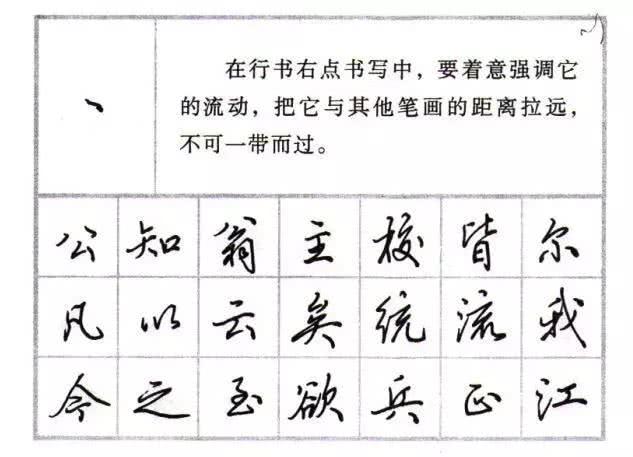 在行书右点书写中，要着意强调它
的流动，把它与其他笔画的距离拉远，
不可一带而过。
丶
公知翁主校皆尔
凡以云矣统流我
今之至欲兵正江